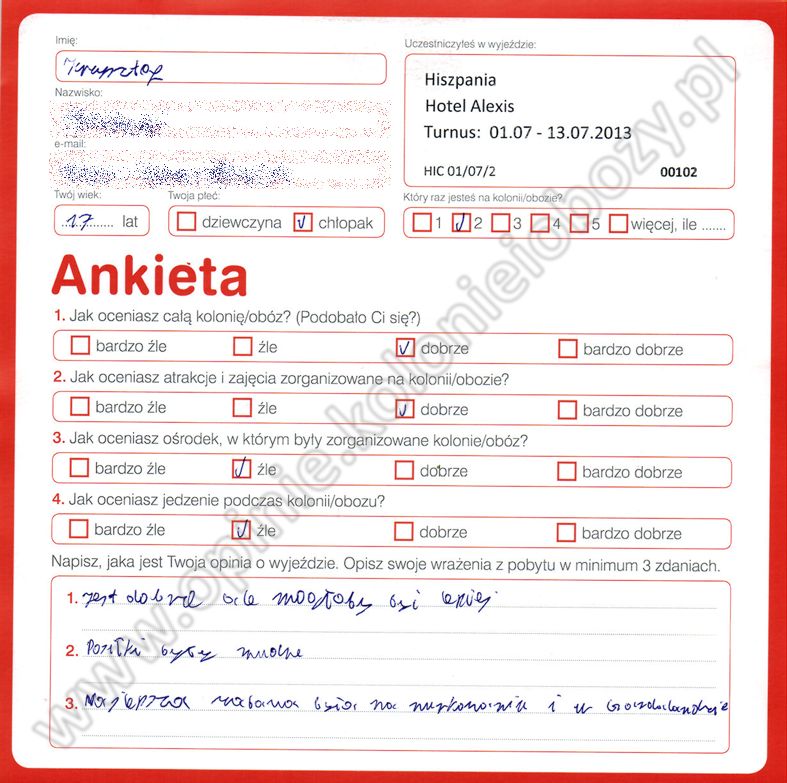 Imię:
Krzysztof
Uczestniczyłeś w wyjeździe:
Hiszpania
Hotel Alexis
Turnus: 01.07 - 13.07.2013
HIC 01/07/2 00102
Nazwisko:
e-mail:
Twój wiek:
17 lat
Twoja płeć:
dziewczyna chłopak
Który raz jesteś na kolonii/obozie?
1 2 3 4 5 więcej, ile .......
Ankieta
1. Jak oceniasz całą kolonię/obóz? (Podobało Ci się?)
bardzo źle źle dobrze bardzo dobrze
2. Jak oceniasz atrakcje i zajęcia zorganizowane na kolonii/obozie?
bardzo źle źle dobrze bardzo dobrze
3. Jak oceniasz ośrodek, w którym były zorganizowane kolonie/obóz?
bardzo źle źle dobrze bardzo dobrze
4. Jak oceniasz jedzenie podczas kolonii/obozu?
bardzo źle źle dobrze bardzo dobrze
Napisz, jaka jest Twoja opinia o wyjeździe. Opisz swoje wrażenia z pobytu w minimum 3 zdaniach.
1. jest dobrze ale mogłoby być lepiej
2. Posiłki były nudne
3. Najlepsza zabawa była na i w
www.opinie.kolonieiobozy.pl